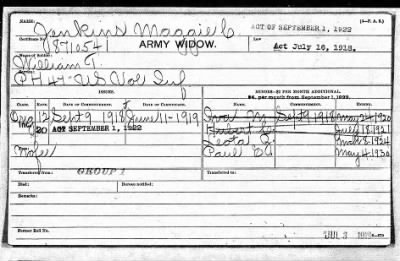 NAME: Jenkins Maggie C ACT OF SEPTEMBER 1, 1922 (3-P. A. B.)
Certificate No. 871054 ARMY WIDOW. Law: Act July 16, 1918.
Name of Soldier:
William T.
47 US Vol Inf
ISSUES. MINORS—$2 PER MONTH ADDITIONAL.
$4. per month from September 1, 1922.
CLASS. RATE. DATE OF COMMENCEMENT. DATE OF CERTIFICATE. NAME. DATE OF COMMENCEMENT.
Orig 12 Sept 9 1918 June 11-1919 Iva M. Sept 9 1918 May 24 1920
INC 20 ACT SEPTEMBER 1, 1922 Hubert July 18 1921
Leota Mar 8 1924
Paul May 4 1930
Transferred from GROUP 1
Died Bureau notified.
Remarks:
Former Roll No. JUL 3